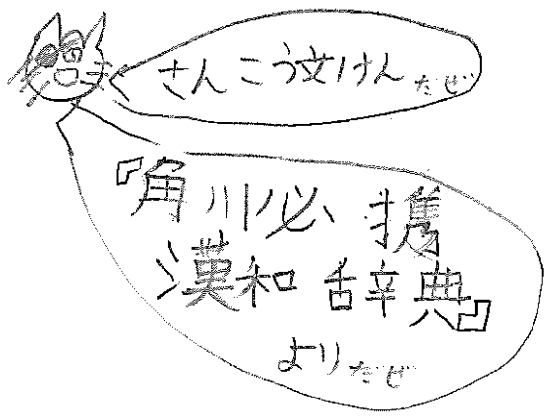 さんこう文けんだぜ
『角川必携
漢和辞典』
よりだぜ